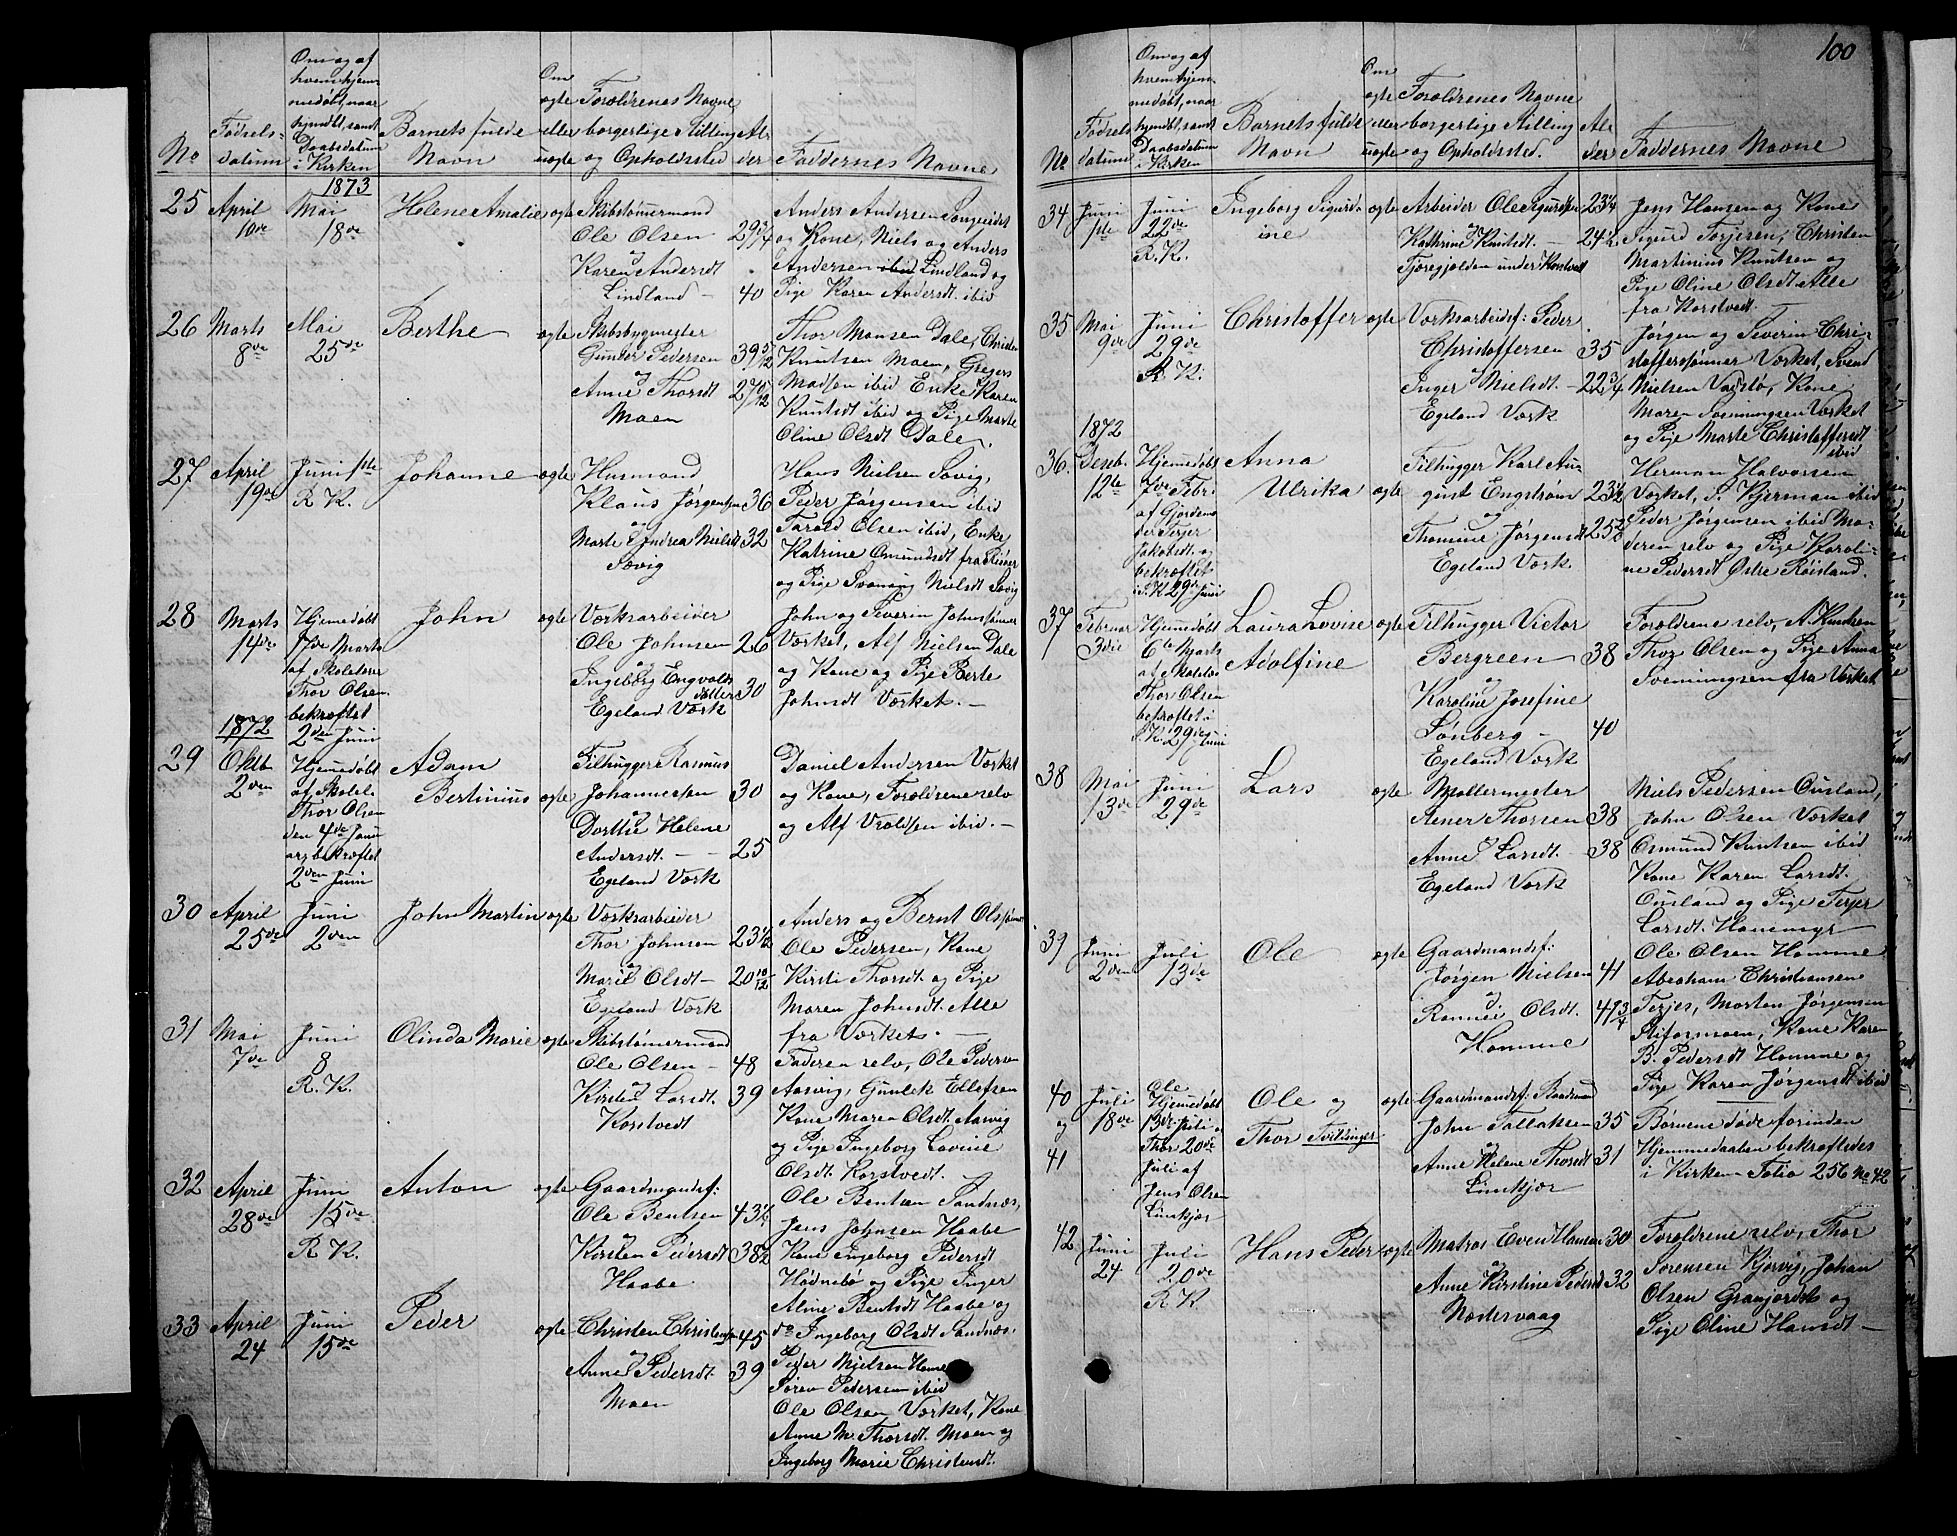 No
Fødsels-
datum
Om og af
hvem hjem-
medøbt, naar
hjmdbt, samt
Daabsdatum
i Kirken
Barnets fulde
Navn
Om
ægte
eller
uægte
Forældrenes Navne
borgerlige Stilling
og Opholdssted
Al-
der
Faddernes Navne
1873
25 April
10de
Mai
18de
Helene Amalie
ægte
Skibstømermand
Ole Olsen 29 3/4
og
Karen Andersdt
Lindland 40
Anders Andersen Songeidet
og Kone, Niels og Anders
Andersen ibid Lindland og
Pige Karen Andersdt. ibid
26 Marts
8de
Mai
25de
Berthe
ægte
Skibsbygmester
Gunder Pedersen 39 5/12
og
Anne Thorsdt 27 10/12
Moen
Thor Monsen Dale, Christen
Knutsen Moen, Gregers
Madsen ibid Enke Karen
Knutsdt ibid og Pige Marte
Oline Olsdt Dale.
27 April
19de
Juni 1ste
R. K.
Johanne
ægte
Husmand
Klaus Jørgensen 36
og
Marte Andrea Nielsdt 32
Søvig
Hans Nielsen Søvig,
Peder Jørgensen ibid
Tarald Olsen ibid, Enke
Katrine Omundsdt fra
og Pige Nielsdt Søvig
28 Marts
14de
Hjemmedøbt
17de Marts
af Skolelærer
Thor Olsen
bekræftet
2den Juni
John
ægte
Værksarbeider
Ole Johnsen 26
og
Ingeborg Engvolds
datter 30
Egeland Værk
John og Severin Johnsønner
Værket, Alf Nielsen Dale
og Kone og Pige Berte
Johnsdt Værket.
1872
29 Oktb
2den
Hjemmedøbt
af Skolel.
Thor Olsen
den 4de Janu
ar, bekræftet
2den Juni
Adam
Bertinius
ægte
Filhugger Rasmus
Johannessen 30
og
Dorthe Helene
Andersdt. 25
Egeland Værk
Daniel Andersen Værket
og Kone, Forældrene selv
og Alf Vraldsen ibid.
30 April
25de
Juni
2den
John Martin
ægte
Værksarbeider
Thor Johnsen 23 1/2
og
Marie Olsdt 20 10/12
Egeland Værk
Anders og Bernt Olssønner
Ole Pedersen, Kone
Kirsti Thorsdt. og Pige
Maren Johnsdt. Alle
fra Værket.
31 Mai
7de
Juni
8
R. K.
Olinda Marie
ægte
Skibstømermand
Ole Olsen 48
og
Kirsten Larsdt. 39
Korstvedt
Faderen selv, Ole Pedersen
Aasvig, Gunlek Ellefsen
Kone Maren Olsdt. Aasvig
og Pige Ingeborg Lovine
Olsdt. Korstvedt.
32 April
28de
Juni
15de
R. K.
Anton
ægte
Gaardmandsf:
Ole Bentsen 43 1/4
og
Kirsten Pedersdt 38 1/2
Haabe
Ole Bentsen Sandnæs,
Jens Johnsen Haabe
Kone Ingeborg Pedersdt
Hødnebø og Pige Inger
Aline Bentsdt Haabe og
do Ingeborg Olsdt Sandnæs.
33 April
24
Juni
15de
Peder
ægte
Christen Christensen 45
og
Anne Pedersdt. 39
Moen
Peder Nielsen
Søren Pedersen ibid
Ole Olsen Værket, Kone
Anne M. Thorsdt. Moen og
Ingeborg Marie Christensdt.
100
No
Fødsels
datum
Om og af
hvem hjem-
medøbt, naar
hjmdbt, samt
Daabsdatum
i Kirken
Barnets fulde
Navn
Om
ægte
eller
uægte
Forældrenes Navne
borgerlige Stilling
og Opholdssted.
Al-
der
Faddernes Navne
34 Juni
1ste
Juni
22de
R. K.
Ingeborg Sigurd-
ine
ægte
Arbeider Ole Sigurdsen 23 1/4
og
Kathrine Knutsdt. 24 1/2
Tjøregjølden under Korstvedt
Jens Hansen og Kone
Sigurd Torjesen, Christen
Martinius Knutsen og
Pige Oline Olsdt. Alle
fra Korstvedt.
35 Mai
9de
Juni
29de
R. K.
Christoffer
ægte
Værksarbeidsf: Peder
Christoffersen 35
og
Inger Nielsdt. 22 3/4
Egeland Værk
Jørgen og Severin Chri-
stofferssønner Værket, Svend
Nielsen Vadstø, Kone
Maren Soenningsen Værket
og Pige Marte Christoffersdt
ibid
1872
36. Deseb.
12te
Hjemmedøbt
7de Febr.
af Gjordemo
der Terjer
Jakobsdt. og
bekræftet
i. K. 29de Juni
Anna
Ulrika
ægte
Filhugger Karl Au-
gust Engstrøm 23 1/2
og
Thomine Jørgensdt
Egeland Værk.
Herman Halvorsen
Værket, S. Kjerman ibid
Peder Jørgensen ibid Mo-
deren selv og Pige Karoli-
ne Pedersdt Østre Røisland.
37 Februar
3die
Hjemmedøbt
6te Marts
af Skolelæ.
Thor Olsen
bekræftet
i. K. 29de Juni
Laura Lovise
Adolfine
ægte
Filhugger Victor
Bergreen 38
og
Karoline Josefine
Lønberg 40
Egeland Værk
Forældrene selv, A. Knutsen
Thor Olsen og Pige Anna
Soenningsen fra Værket
38 Mai
13de
Juni
29de
Lars
ægte
Møllermester
Aaner Thorsen 38
og
Anne Larsdt. 38
Egeland Værk
Niels Pedersen Ousland,
John Olsen Værket
Osmund Knutsen ibid
Kone Karen Larsdt.
Ousland og Pige Terjer
Larsdt. Hanemyr
39 Juni
2den
Juli
13de
Ole
ægte
Gaardmandsf:
Jørgen Nielsen 41
og
Rannei Olsdt. 41 3/4
Homme
Ole Olsen Homme
Abraham Christiansen
Terjes, Morten Jørgensen
Kone Karen
B. Pedersdt Homme og
Pige Karen Jørgensdt ibid
40
og
41
Juli
18de
Ole
Hjemmedøbt
13de Juli og
Thor 20de
Juli af
Jens Olsen
Limkjær
Ole og
Thor Tvilinger
ægte
Gaardmandsf:
John Tallaksen 35
og
Anne Helene Thorsdt 31
Limkjær
Børnene døde forinden
Hjemmedaaben bekræftedes
i Kirken Folio 256 No 42
42 Juni
24
Juli
20de
R. K.
Hans Peder
ægte
Matros Even Hansen 30
og
Anne Kirstine Pedersdt 32
Nædrevaag
Forældrene selv, Thor
Sørensen Kjørvig, Johan
Olsen og
Pige Oline Hansdt